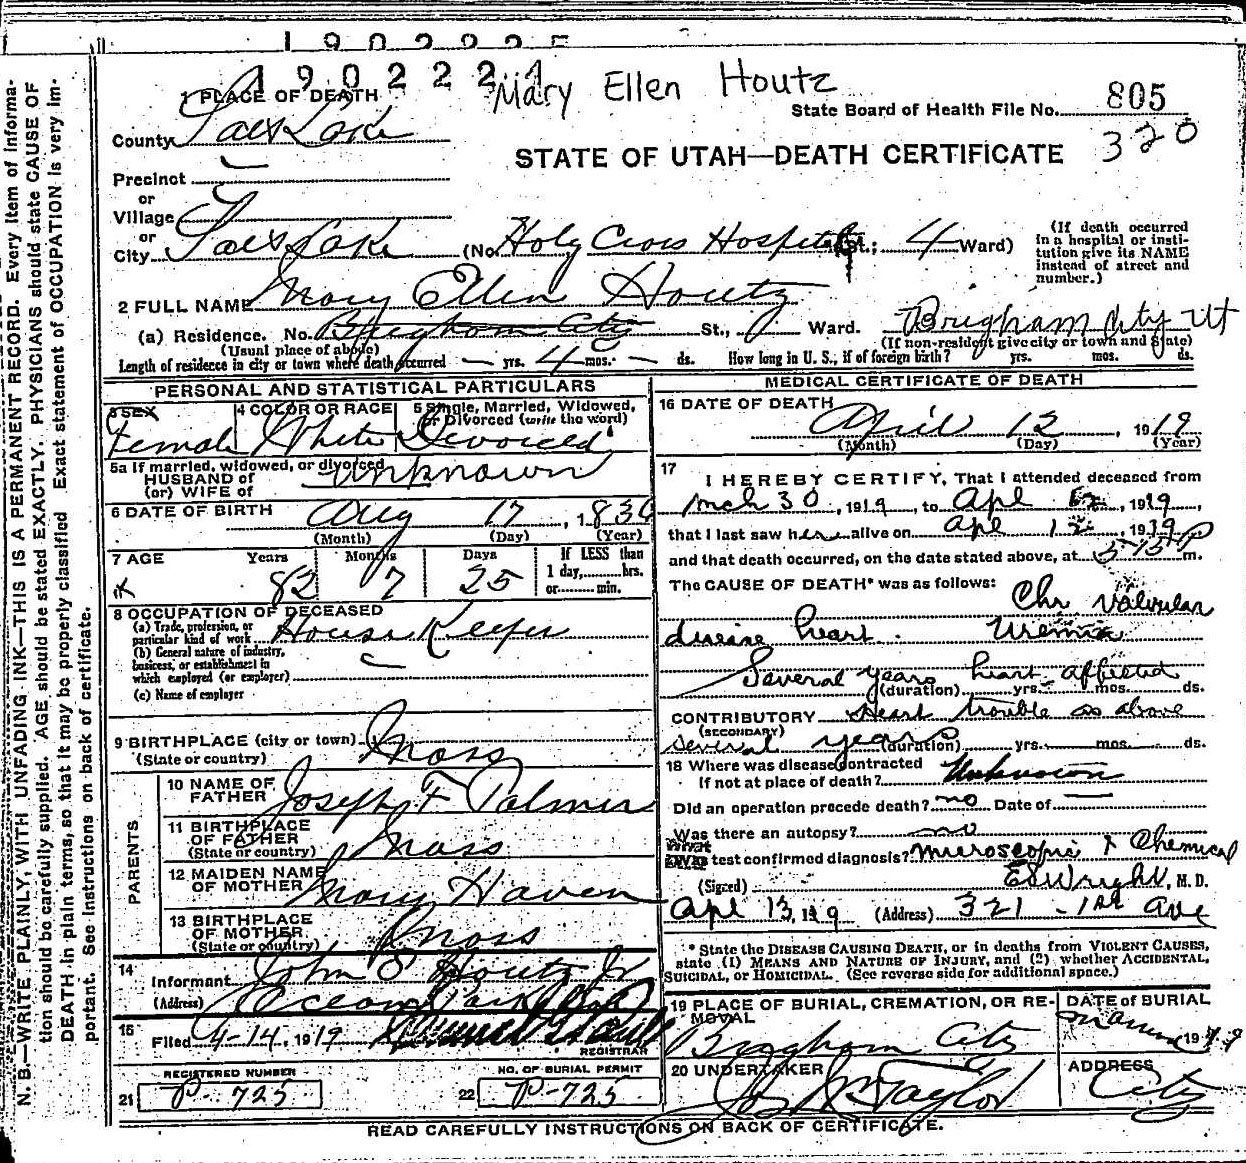 190222
Mary Ellen Houtz
1 PLACE OF DEATH
State Board of Health File No. 805
320
County Salt Lake
STATE OF UTAH—DEATH CERTIFICATE
Precinct
or
Village
or
City Salt Lake (No. Holy Cross Hospital St.; 4 Ward)
(If death occurred in a hospital or institution give its NAME instead of street and number.)
2 FULL NAME Mary Ellen Houtz
(a) Residence. No. Brigham City St., Ward. Brigham City Ut
(Usual place of above) (If non-resident give city or town and State)
Length of residence in city or town where death occurred — yrs. 4 mos. — ds. How long in U. S., if of foreign birth? yrs. mos. ds.
PERSONAL AND STATISTICAL PARTICULARS
3 SEX Female
4 COLOR OR RACE White
5 Single, Married, Widowed, or Divorced (write the word) Divorced
5a If married, widowed, or divorced
HUSBAND of
(or) WIFE of unknown
6 DATE OF BIRTH Aug 17, 1836
(Month) (Day) (Year)
7 AGE Years 82 Months 7 Days 25
If LESS than 1 day, hrs. or min.
8 OCCUPATION OF DECEASED
(a) Trade, profession, or particular kind of work House Keeper
(b) General nature of industry, business, or establishment in which employed (or employer)
(c) Name of employer
9 BIRTHPLACE (city or town) Mass
(State or country)
PARENTS
10 NAME OF FATHER Joseph F Palmer
11 BIRTHPLACE OF FATHER Mass
(State or country)
12 MAIDEN NAME OF MOTHER Mary Haven
13 BIRTHPLACE OF MOTHER Mass
(State or country)
14 Informant John S Houtz Jr
(Address) Ocean Park
15 Filed 4-14, 1919
REGISTRAR
REGISTERED NUMBER
21 P-725
NO. OF BURIAL PERMIT
22 P-725
MEDICAL CERTIFICATE OF DEATH
16 DATE OF DEATH April 12, 1919
(Month) (Day) (Year)
17 I HEREBY CERTIFY, That I attended deceased from
Mch 30, 1919, to Apl 12, 1919,
that I last saw her alive on Apl 12, 1919
and that death occurred, on the date stated above, at m.
The CAUSE OF DEATH* was as follows:
Chr Valvular
disease heart. Uremia
Several years heart affected
(duration) yrs. mos. ds.
CONTRIBUTORY Heart trouble as above
(SECONDARY)
several years (duration) yrs. mos. ds.
18 Where was disease contracted
If not at place of death? Unknown
Did an operation precede death? no Date of —
Was there an autopsy? no
What test confirmed diagnosis? Microscopic & Chemical
(Signed) E S Wright, M. D.
Apl 13, 1919 (Address) 321 - 1st Ave
* State the DISEASE CAUSING DEATH, or in deaths from VIOLENT CAUSES, state (1) MEANS AND NATURE OF INJURY, and (2) whether ACCIDENTAL, SUICIDAL, or HOMICIDAL. (See reverse side for additional space.)
19 PLACE OF BURIAL, CREMATION, OR REMOVAL
Brigham City
DATE of BURIAL
20 UNDERTAKER
Jos Wm Taylor
ADDRESS
City
READ CAREFULLY INSTRUCTIONS ON BACK OF CERTIFICATE.
N. B.—WRITE PLAINLY, WITH UNFADING INK—THIS IS A PERMANENT RECORD. Every item of information should be carefully supplied. AGE should be stated EXACTLY. PHYSICIANS should state CAUSE OF DEATH in plain terms, so that it may be properly classified. Exact statement of OCCUPATION is very important. See Instructions on back of certificate.